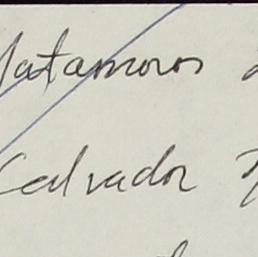 Matamoros
Calvador